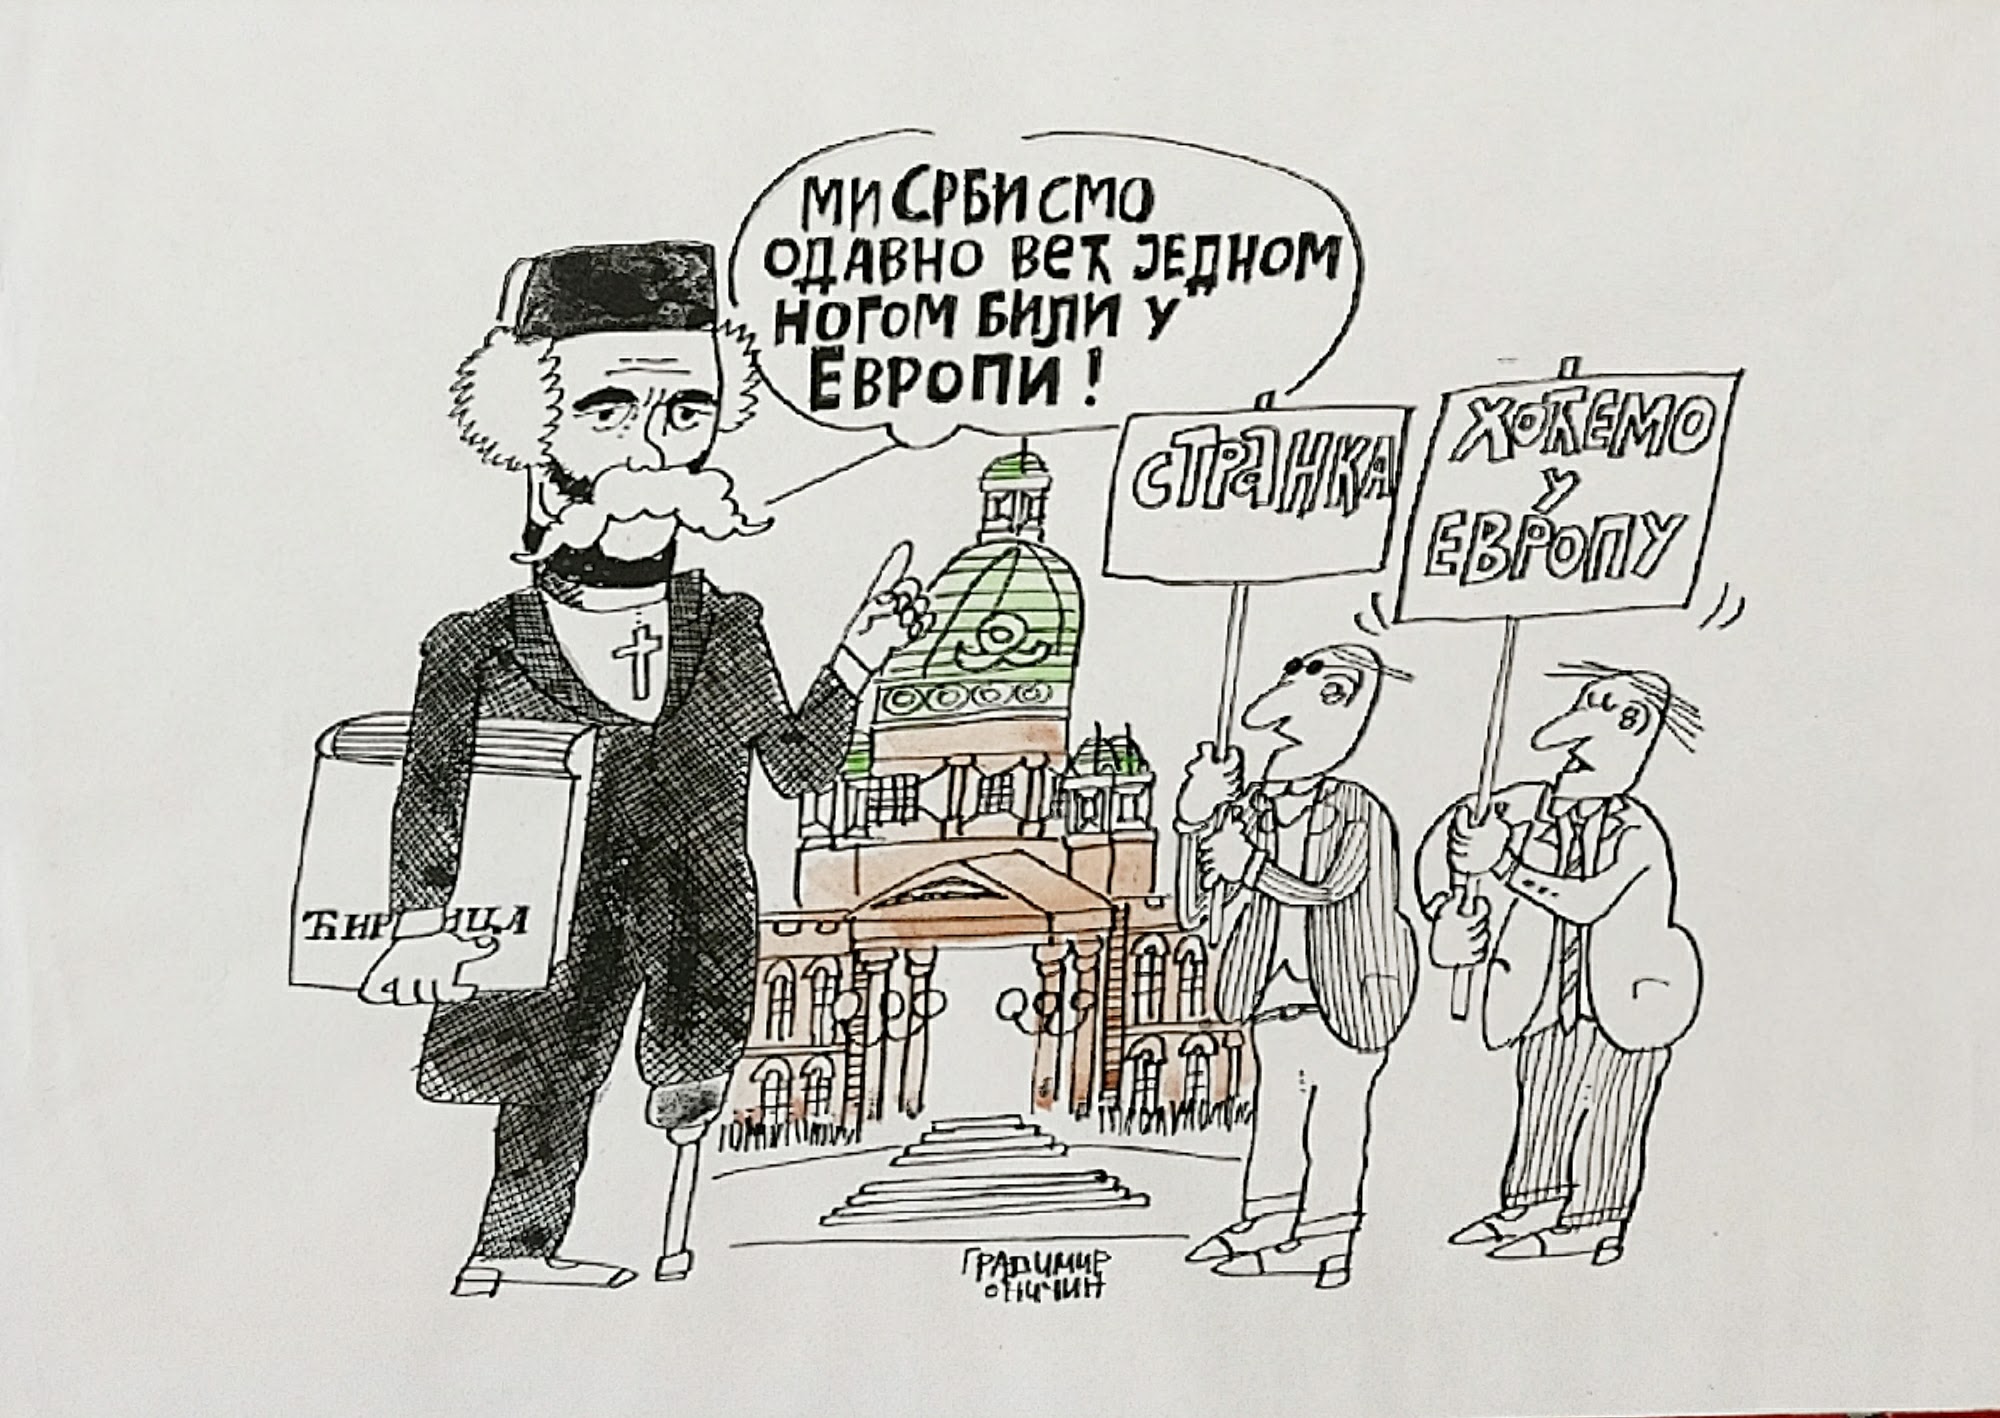 МИ СРБИ СМО
ОДАВНО ВЕЋ ЈЕДНОМ
НОГОМ БИЛИ У
ЕВРОПИ!
СТРАНКА
ХОЋЕМО
У
ЕВРОПУ
ЋИР ИЦА
ГРАДИМИР
ОНИЧИН